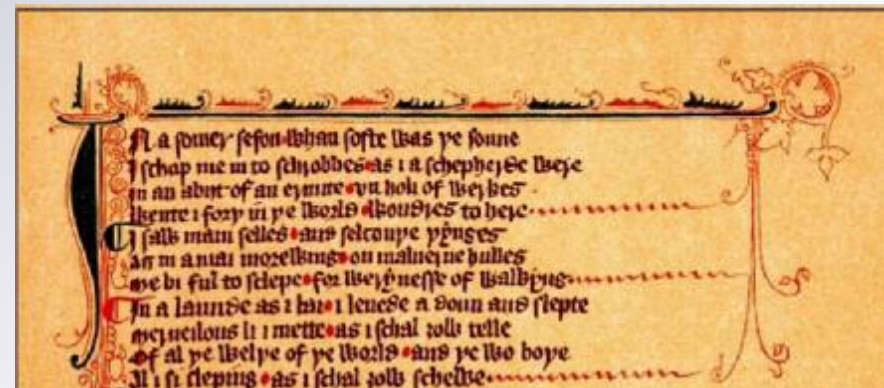 IN a somer seson whan softe was þe sonne
I schop me in to schrobbes as i a schepherde were
in an abit of an ermite vn holi of werkes
Wente i forþ in þe world wondres to here
I saw mani selles and selcouþe þynges
as in a mai morewing on maluerne hulles
me bi ful to sclepe for werynesse of walkyng
In a launde as i lai i lenede a doun and slepte
merueilous li i mette as i schal ȝow telle
Of al þe welþe of þe world and þe wo boþe
Al i si sleping as i schal ȝow schewe